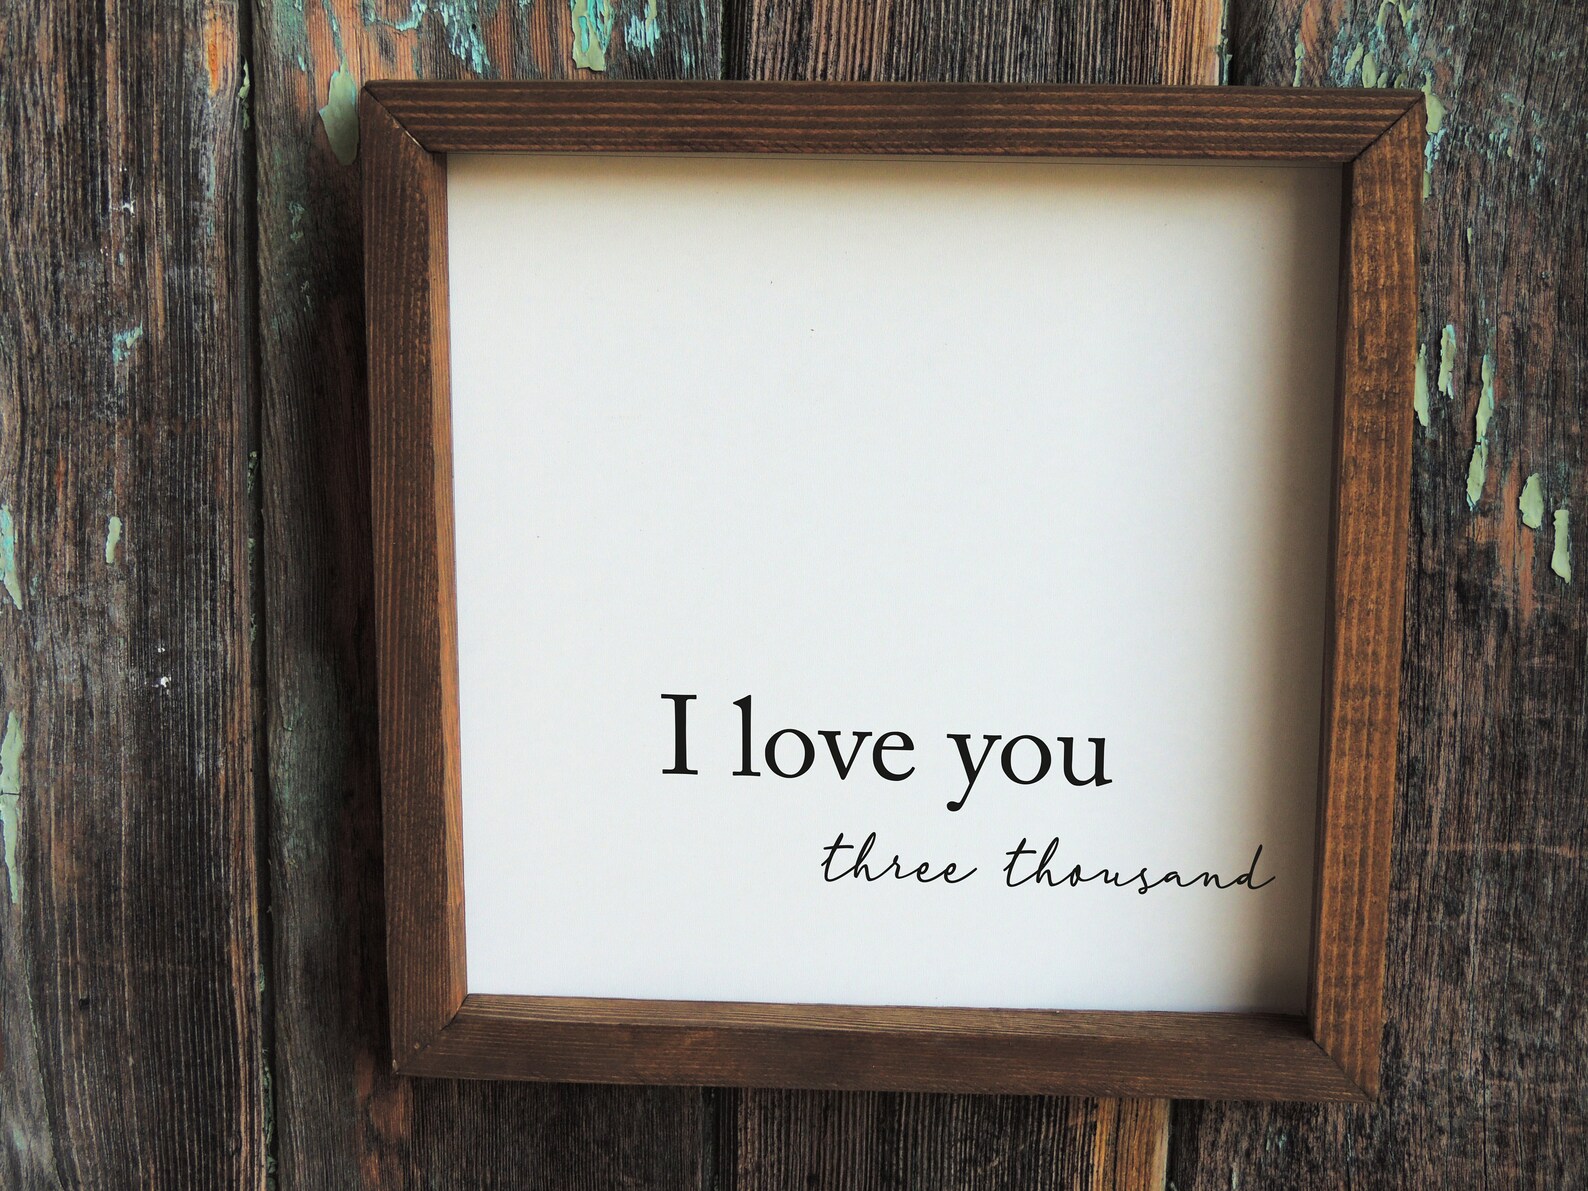 I love you
three thousand